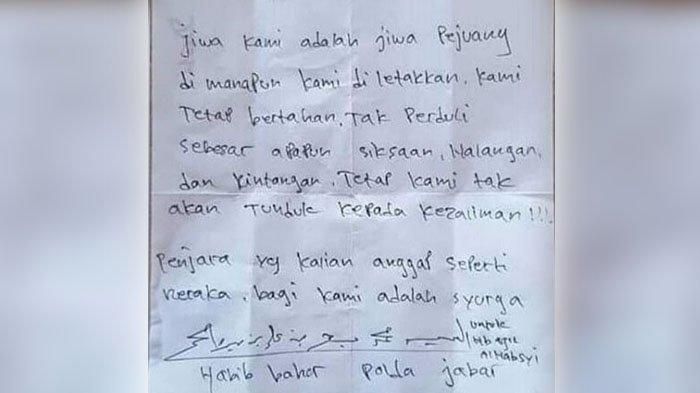 jiwa kami adalah jiwa Pejuang
di manapun kami di letakkan. kami
Tetap bertahan. Tak Perduli
sebesar apapun siksaan, Halangan,
dan Rintangan. Tetap kami tak
akan Tunduk kepada kezaliman!!!
Penjara yg kalian anggap seperti
neraka. bagi kami adalah syurga
untuk
Al Habsyi
Habib bahar Polda jabar